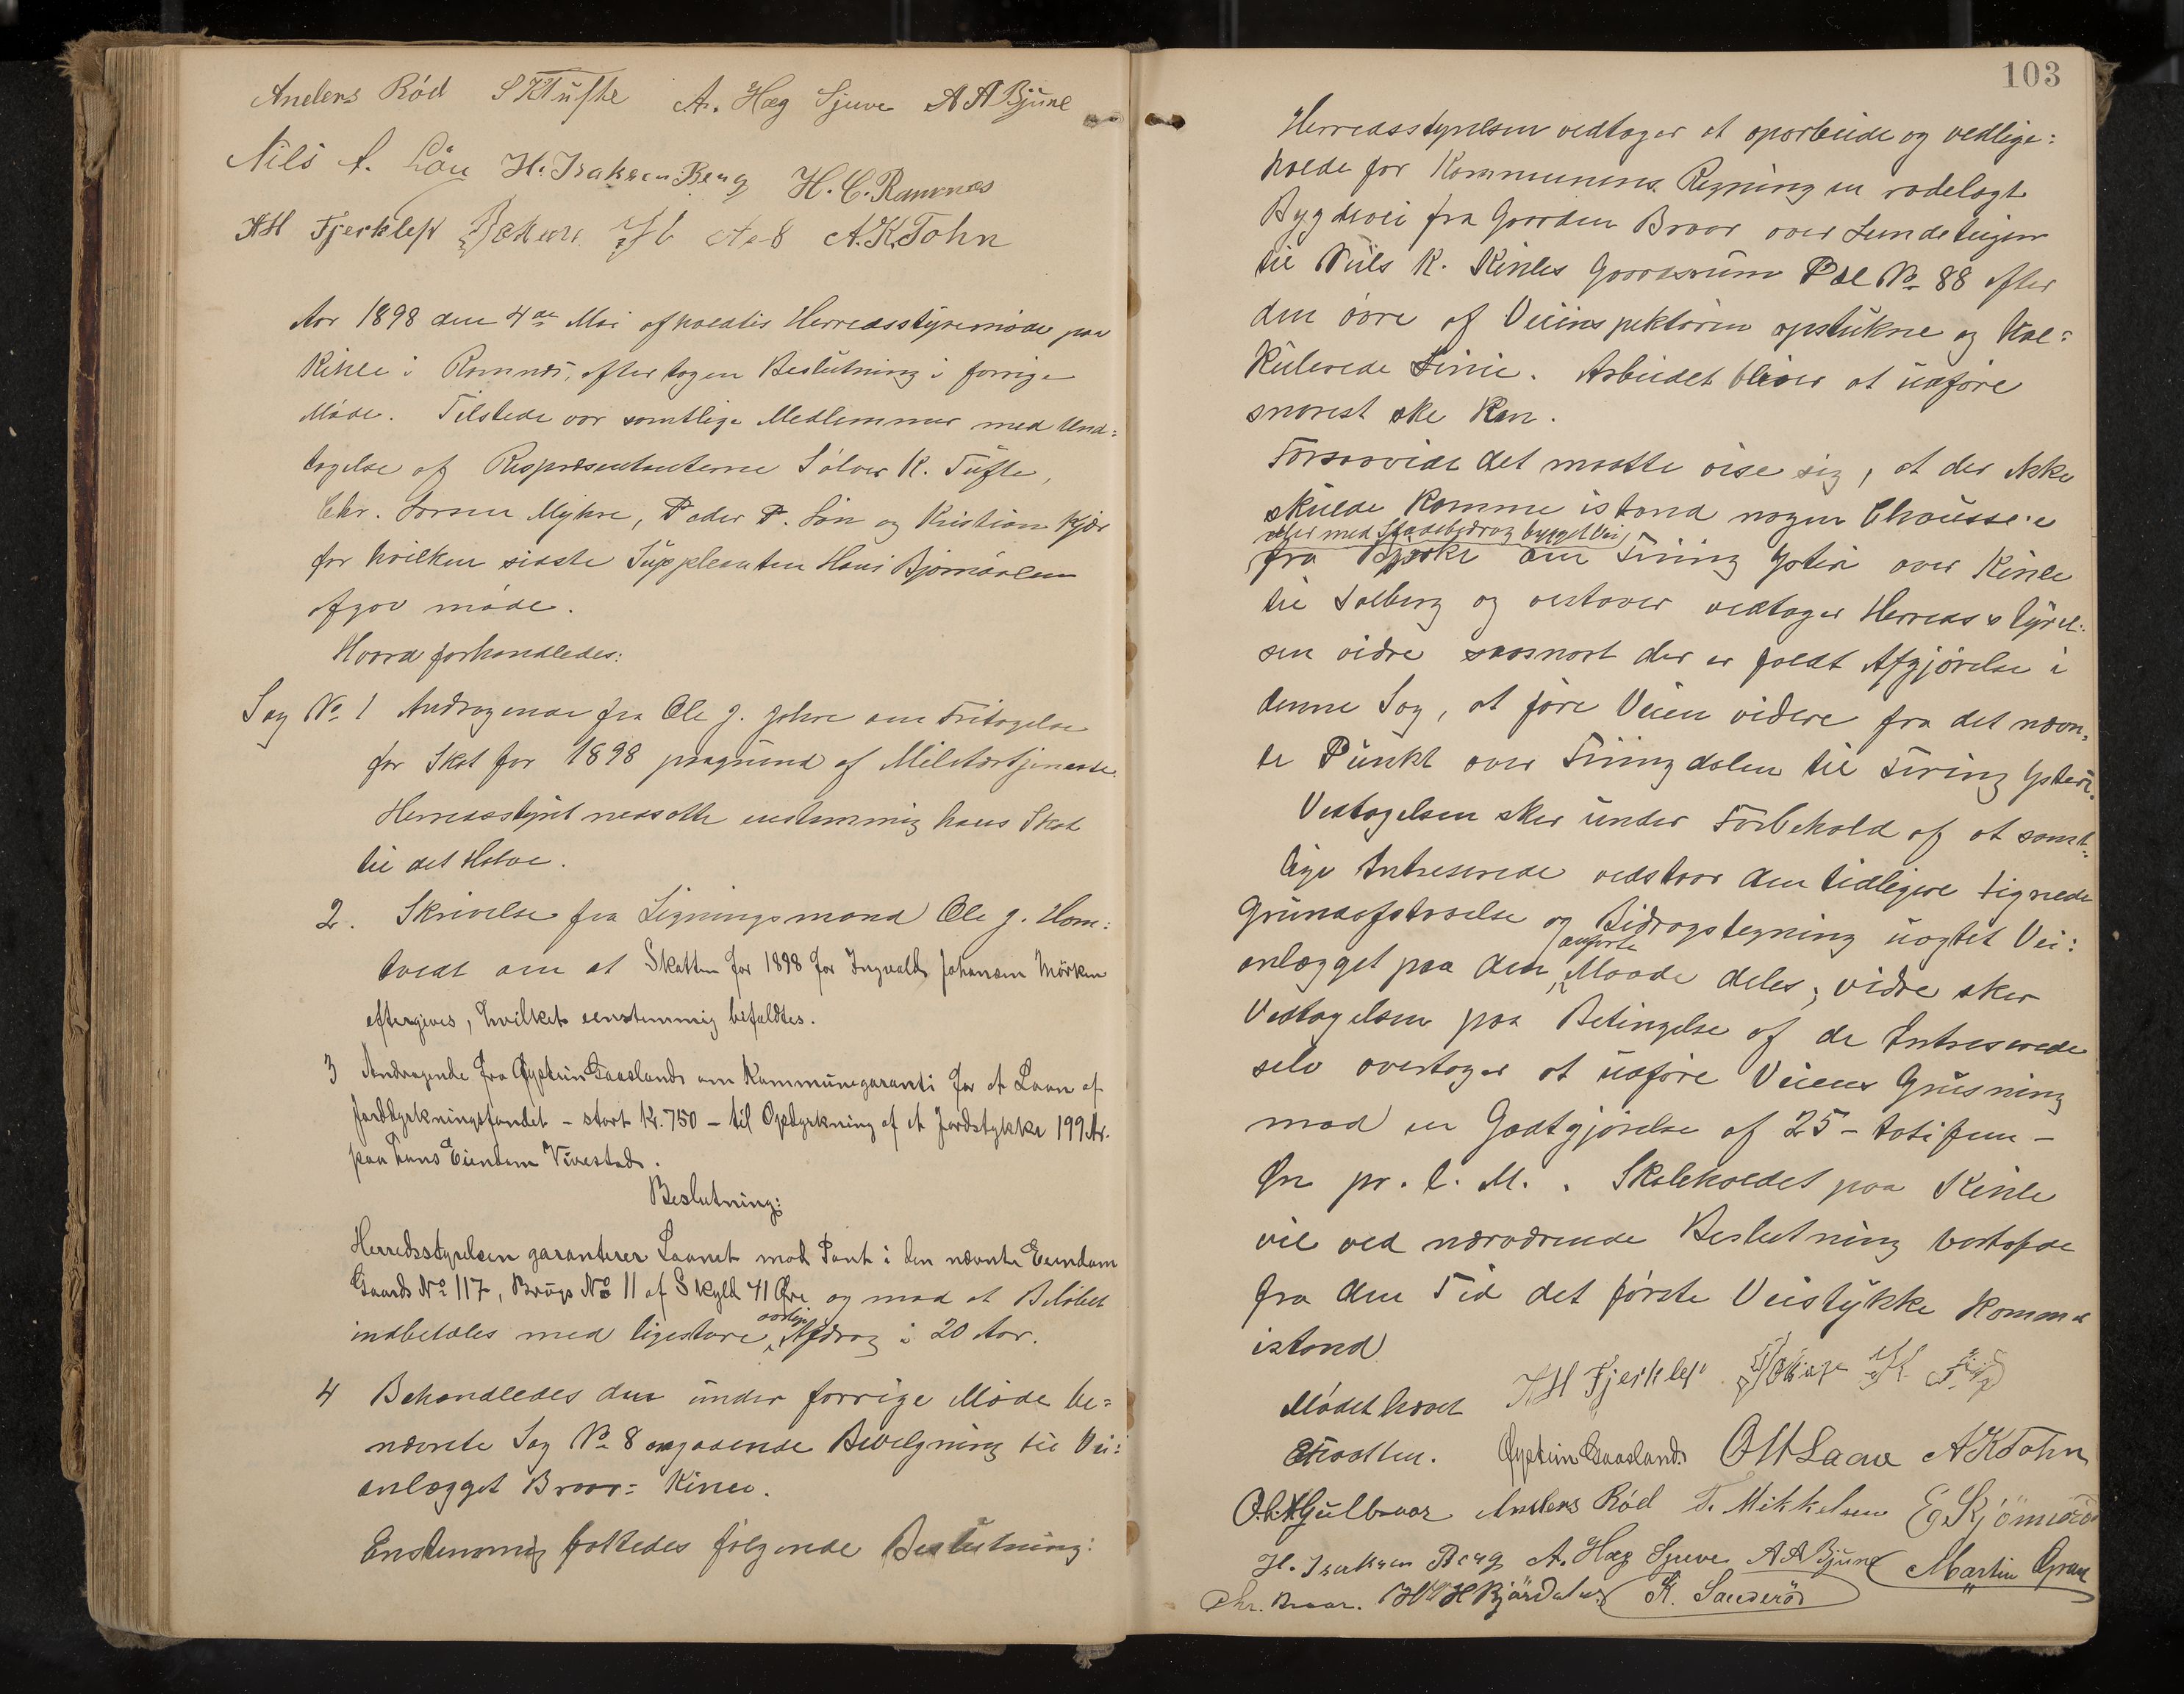 Anders Röd S K Tufte A. Hæg Sjuve A A Bjune
Nils A. Lön H. Isaksen Berg H. C. Ramnæs
A. K. Tohn
Aar 1898 den 4de Mai afholdtes Herredsstyremöde paa
Kihle i Ramnæs, efter tagen Beslutning i forrige
Möde. Tilstede var samtlige Medlemmer med Und=
tagelse af Repræsentanterne Sölver K. Tufte,
Chr. Larsen Myhre, Peder P. Lön og Kristian Kjær
for hvilken sidste Suppleanten Hans Bjørndalen
afgav möde.
Hvorda forhandledes:
Sag No 1 Andragende fra Ole J. Johre om Fritagelse
for Skat for 1898 paagrund af Militærtjeneste.
Herredsstyret nedsatte enstemmig hans Skat
til det Halve.
2. Skrivelse fra Ligningsmand Ole J. Hom=
tvedt om at Skatten for 1898 for Ingvald Johansen Mörken
eftergives, hvilket enstemmig bifaldtes.
3 Andragende fra Øystein Gaasland om Kommunegaranti for et Laan af
Jorddyrkningsfondet - stort Kr. 750 - til Opdyrkning af et Jordstykke 199 Ar.
paa hans Eiendom Vivestad.
Beslutning:
Herredsstyrelsen garanterer Laanet mod Pant i den nævnte Eiendom
Gaards No 117, Brugs No 11 af Skyld 41 Øre og mod at Belöbet
indbetales med ligestore aarlige Afdrag i 20 Aar.
4 Behandledes den under forrige Möde be=
nævnte Sag No 8 angaaende Bevilgning til Vei=
anlægget Braar= Kihle.
Enstemmig fattedes fölgende Beslutning:
103
Herredsstyrelsen vedtager at oparbeide og vedlige=
holde for Kommunens Regning en rodelagt
Bygdevei fra Gaarden Braar over Lundeteigen
til Nils K. Kihles Gaardsrum Pæl No 88 efter
den övre af Veiinspektören opstukne og kal=
kulerede Linie. Arbeidet bliver at udföre
snarest ske kan.
Forsaavidt det maatte vise sig, at der ikke
skulde komme istand nogen Chaussee
eller med Stadsbidrag bygget Vei
fra Bjerke om Firing Ysteri over Kihle
til Solberg og vestover vedtager Herredsstyrel=
sen vidre saasnart der er faldt Afgjörelse i
denne Sag, at före Veien videre fra det nævn=
te Punkt over Firingdalen til Firing Ysteri.
Vedtagelsen sker under Forbehold af at samt=
lige Intreserede vedstaar den tidligere tignede
Grundafstaaelse og Bidragstegning uagtet Vei=
anlægget paa den anförte Maade deles; vidre sker
Vedtagelsen paa Betingelse af de Intreserede
selv overtager at udföre Veiens Grusning
mod en Godtgjörelse af 25 - totifem -
Øre pr. l. M. . Skoleholdet paa Kihle
vil ved nærværende Beslutning bortfalde
fra den Tid det förste Veistykke kommer
istand
Mödet hævet
Øystein Gaasland. O H Laane A K Tohn
O. A. Gulbraar Anders Röd T. Mikkelsen
H. Isaksen Berg A. Hæg Sjuve A A Bjune Martin Gran
Chr. Braar. H H Bjørdalen K. Sanderöd